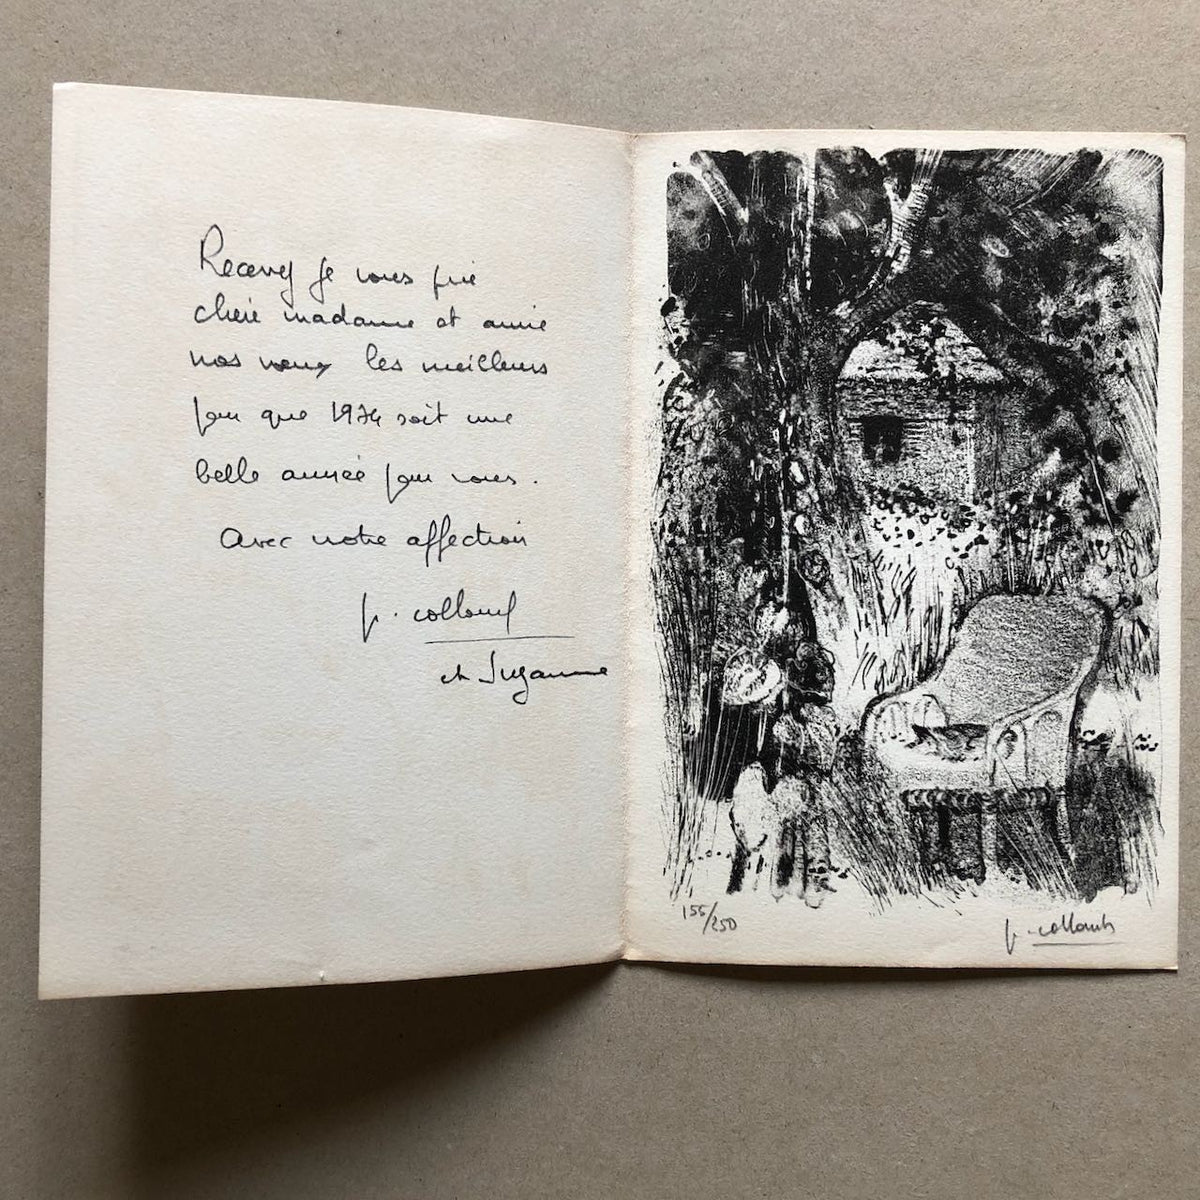 Recevez je vous prie
chère madame et amie
nos vœux les meilleurs
pour que 1974 soit une
belle année pour vous.
Avec notre affection
p. collomb
et Suzanne
155/250
p. collomb